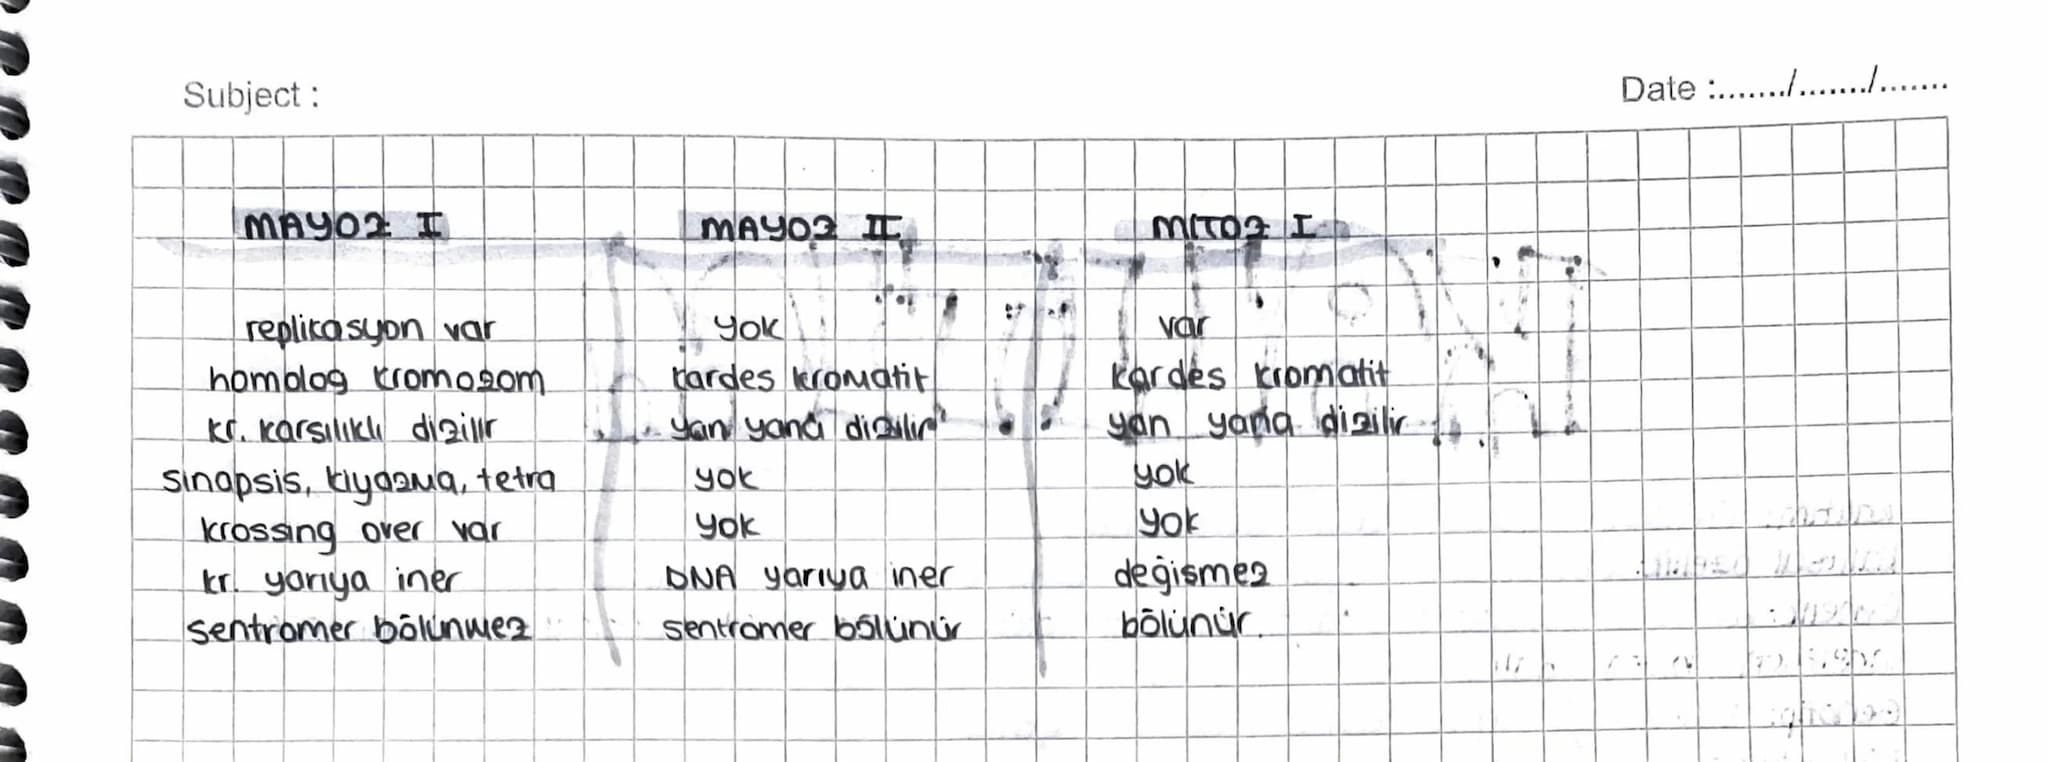 Subject :
Date :......./......./.......
MAYOZ I MAYOZ II MITOZ I
replikasyon var yok var
homolog kromozom kardes kromatit kardes kromatit
kr. karsılıklı dizilir yan yana dizilir yan yana dizilir
sinapsis, kiyazma, tetra yok yok
krossing over var yok yok
kr. yarıya iner DNA yarıya iner değismez
sentromer bölünmez sentromer bölünür bölünür.